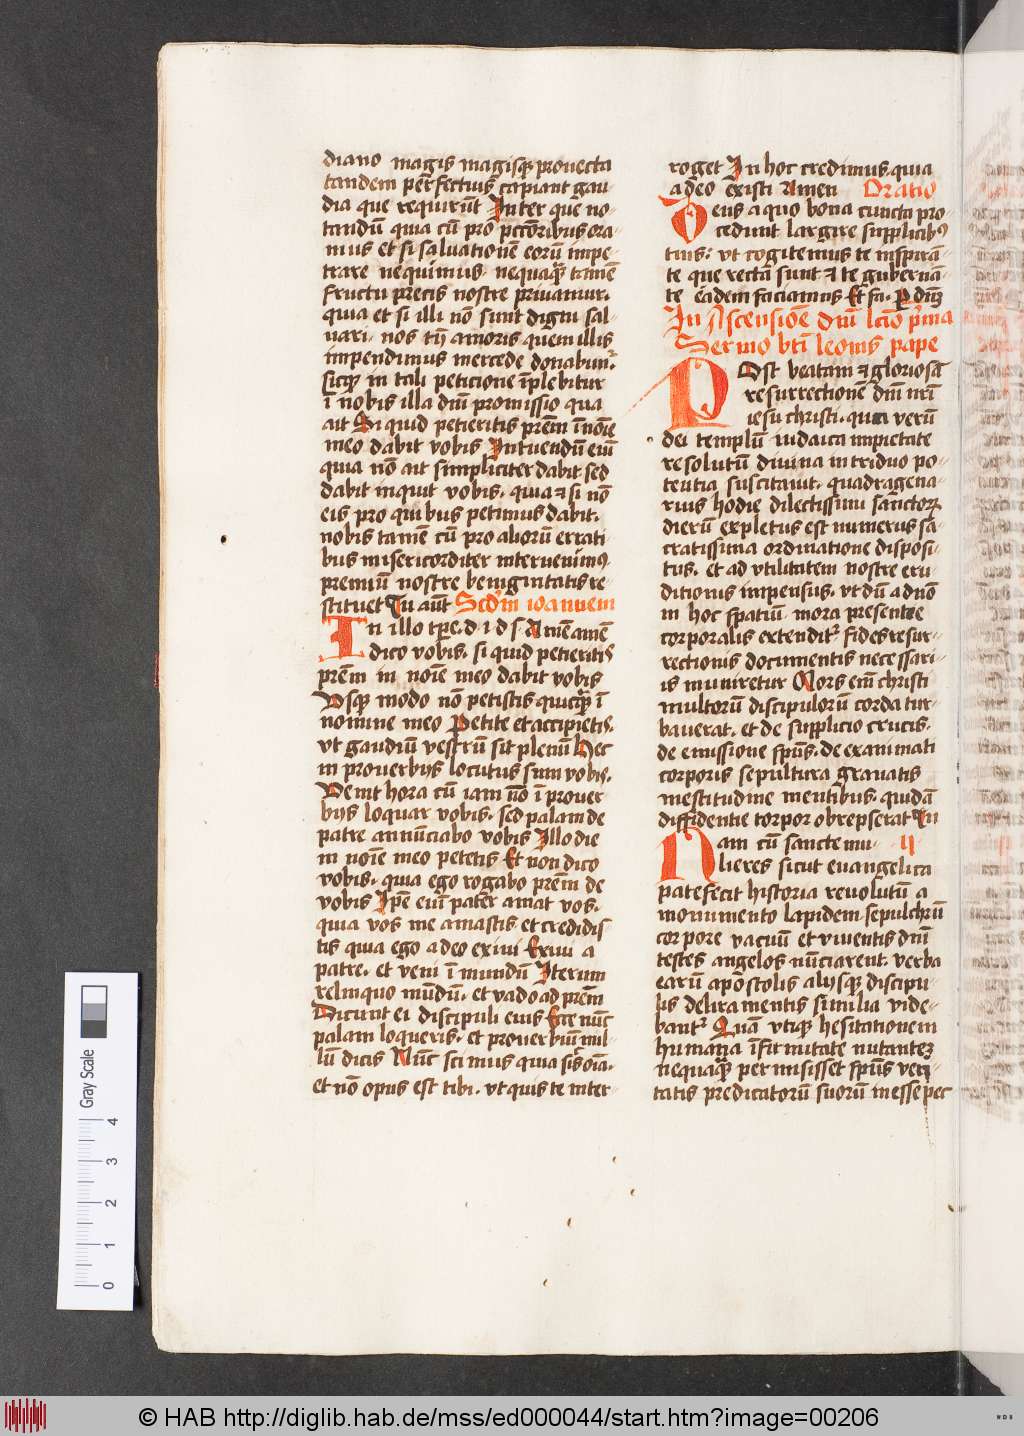 diano magis magisq̄ prouecta
tandem perfectius capiant gau
dia que requirūt Inter que no-
tandū quia cū pro pctōribus ora-
mus et si saluationē eorū impe-
trare nequimus· nequaq̄ tamē
fructu precis nostre priuamur·
quia et si illi nō sunt digni sal-
uari· nos tn̄ amoris quem illis
impendimus mercede donabunᷣ
sicq̄ in tali peticione īplebitur
ī nobis illa dnī promissio qua
ait Si quid petieritis prēm ī noīe
meo dabit vobis Intuendū eciā
quia nō ait simpliciter dabit sed
dabit inquit vobis· quia ⁊ si nō
eis pro quibus petimus dabit·
nobis tamē cū pro aliorū errati
bus misericorditer interuenimꝰ
premiū nostre benignitatis re
stituet Tu aūt Scdm̄ ioannem
In illo tp̄e· d· i· d· s· Amē amē
dico vobis· si quid petieritis
prēm in noīe meo dabit vobis
Usq̄ modo nō petistis quicq̄ ī
nomine meo Petite et accipietis·
vt gaudiū vestrū sit plenū Hec
in prouerbijs locutus sum vobis·
Venit hora cū iam nō ī prouer
bijs loquar vobis· sed palam de
patre annūciabo vobis Illo die
in noīe meo petetis Et non dico
vobis· quia ego rogabo prēm de
vobis Ip̄e eni pater amat vos·
quia vos me amastis et credidis
tis quia ego a deo exiui Exiui a
patre· et veni ī mundū Iterum
relinquo mūdū· et vado ad prēm
Dicunt ei discipuli eius Ecce nūc
palam loqueris· et prouerbiū nul-
lū dicis Nūc scimus quia scis oīa·
et nō opus est tibi· vt quis te inter-
roget In hoc credimus quia
a deo existi Amen Oratio
Deus a quo bona cuncta pro-
cedunt largire supplicibꝰ
tuis· vt cogitemus te inspirā-
te que recta sunt ⁊ te gubernā-
te eadem faciamus Et fa· P dnm̄
In Ascensiōe dnī lc̄io p̄ma
Sermo btī leonis pape
Post beatam ⁊ gloriosā
resurrectionē dnī nrī
iesu christi· qua verū
dei templū iudaica impietate
resolutū diuina in triduo po-
tentia suscitauit· quadragena-
rius hodie dilectissimi sanctorꝝ
dierū expletus est numerus sa-
cratissima ordinatione disposi-
tus· et ad vtilitatem nostre eru
ditionis impensus· vt dū a dnō
in hoc spatiū mora presentie
corporalis extenditᷣ fides resur-
rectionis documentis necessari-
is muniretur Mors eni christi
multorū discipulorū corda tur-
bauerat· et de supplicio crucis·
de emissione spūs· de exanimati
corporis sepultura grauatis
mestitudine mentibus· quidā
diffidentie torpor obrepserat Tu
Nam cū sancte mu- ij·
lieres sicut euangelica
patefecit historia reuolutū a
monumento lapidem· sepulchrū
corpore vacuū et viuentis dnī
testes angelos nūciarent· verba
earū apostolis alijsq̄ discipu-
lis deliramentis similia vide-
bantᷣ Quā vtiq̄ hesitationem
humana īfirmitate nutantez
nequaq̄ permisisset spūs veri-
tatis predicatorū suorū inesse pec
Gray Scale
0 1 2 3 4
© HAB http://diglib.hab.de/mss/ed000044/start.htm?image=00206